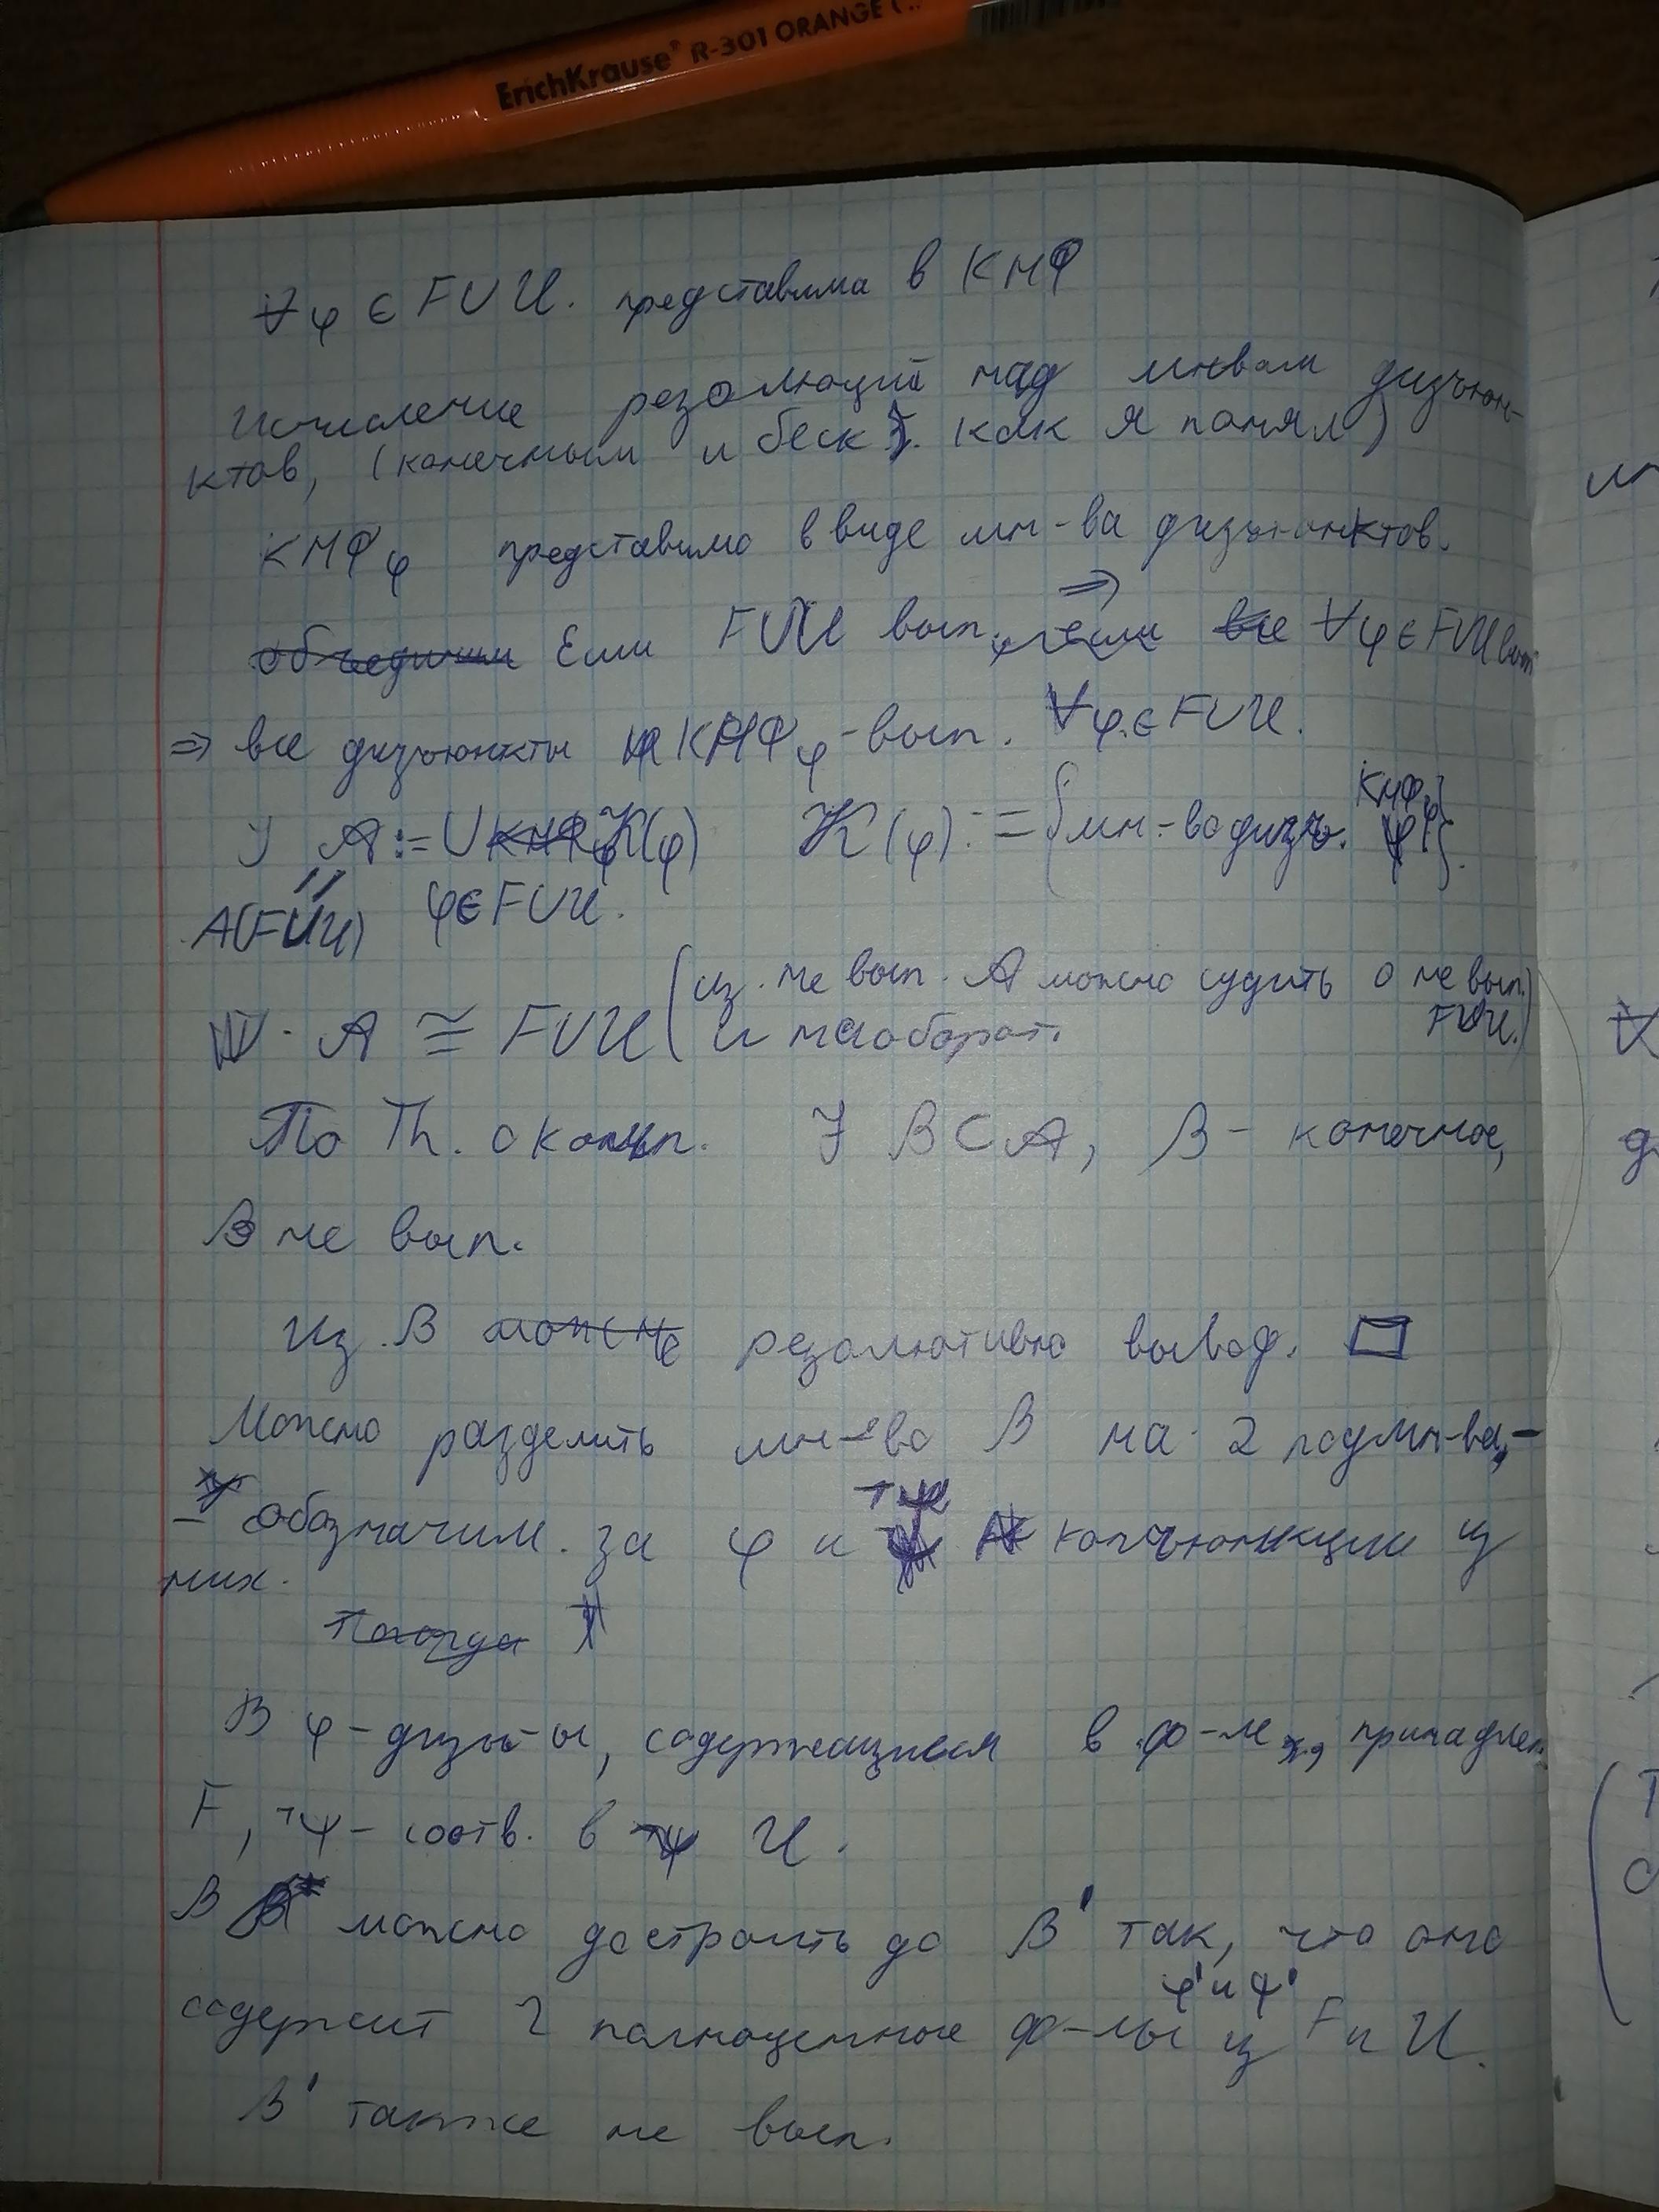 ErichKrause® R-301 ORANGE (..
∀φ ∈ F∪U. представима в КНФ
Исчисление резолюций над мнвом дизъюн-
ктов, (конечным и беск. как я понял)
КНФφ представимо в виде мн-ва дизъюнктов.
Если F∪U вып. ⇒ ∀φ∈F∪U вып
⇒ все дизъюнкты КНФφ - вып. ∀φ∈F∪U.
] A := ∪ K(φ) K(φ) := {мн-во дизъ. КНФφ}.
A(F∪U) φ∈F∪U.
A ≅ F∪U (из не вып. A можно судить о не вып. F∪U.)
и наоборот.
По Th. о комп. ∃ B⊂A, B - конечное,
B не вып.
Из B резолютивно вывод. □
Можно разделить мн-во B на 2 подмн-ва, -
- обозначим за φ и ¬ψ конъюнкции из
них.
В φ - дизъ-ы, содержащиеся в ф-лах, принадлеж.
F, ¬ψ - соотв. в U.
B можно достроить до B' так, что оно
содержит 2 полноценные ф-лы φ' и ψ' из F и U.
B' также не вып.